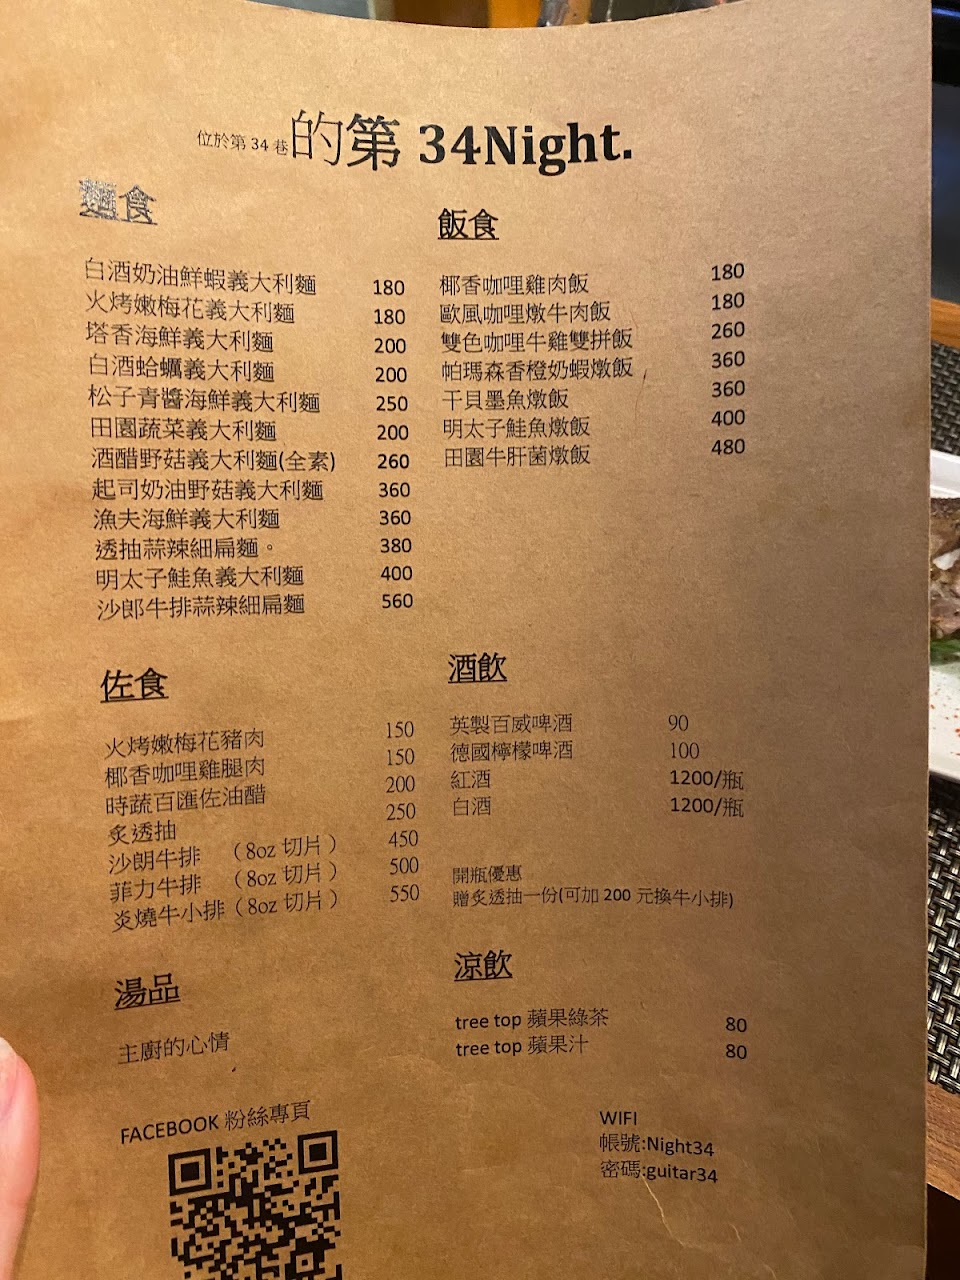 位於第 34 巷的第 34Night.
麵食
白酒奶油鮮蝦義大利麵 180
火烤嫩梅花義大利麵 180
塔香海鮮義大利麵 200
白酒蛤蠣義大利麵 200
松子青醬海鮮義大利麵 250
田園蔬菜義大利麵 200
酒醋野菇義大利麵(全素) 260
起司奶油野菇義大利麵 360
漁夫海鮮義大利麵 360
透抽蒜辣細扁麵。 380
明太子鮭魚義大利麵 400
沙郎牛排蒜辣細扁麵 560
飯食
椰香咖哩雞肉飯 180
歐風咖哩燉牛肉飯 180
雙色咖哩牛雞雙拼飯 260
帕瑪森香橙奶蝦燉飯 360
干貝墨魚燉飯 360
明太子鮭魚燉飯 400
田園牛肝菌燉飯 480
佐食
火烤嫩梅花豬肉 150
椰香咖哩雞腿肉 150
時蔬百匯佐油醋 200
炙透抽 250
沙朗牛排 （8oz 切片） 450
菲力牛排 （8oz 切片） 500
炎燒牛小排（8oz 切片） 550
酒飲
英製百威啤酒 90
德國檸檬啤酒 100
紅酒 1200/瓶
白酒 1200/瓶
開瓶優惠
贈炙透抽一份(可加 200 元換牛小排)
湯品
主廚的心情
涼飲
tree top 蘋果綠茶 80
tree top 蘋果汁 80
FACEBOOK 粉絲專頁
WIFI
帳號:Night34
密碼:guitar34